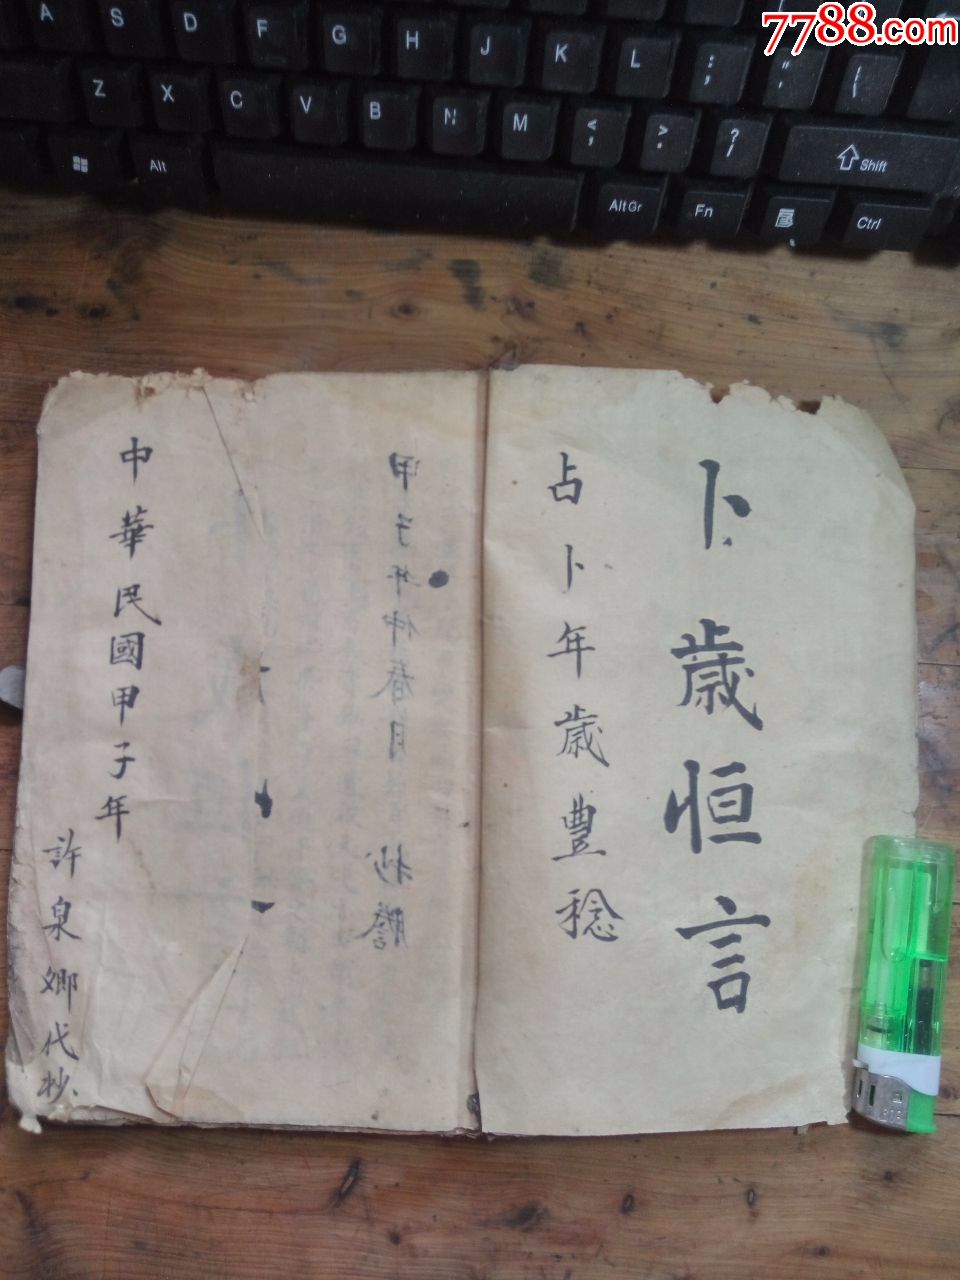 7788.com
A S D F G H J K L ; : ' "
Z X C V B N M , < . > / ?
Shift
Alt
Alt Gr
Fn
Ctrl
卜歲恒言
占卜年歲豐稔
甲子年仲春月
抄謄
中華民國甲子年
許泉鄉代抄